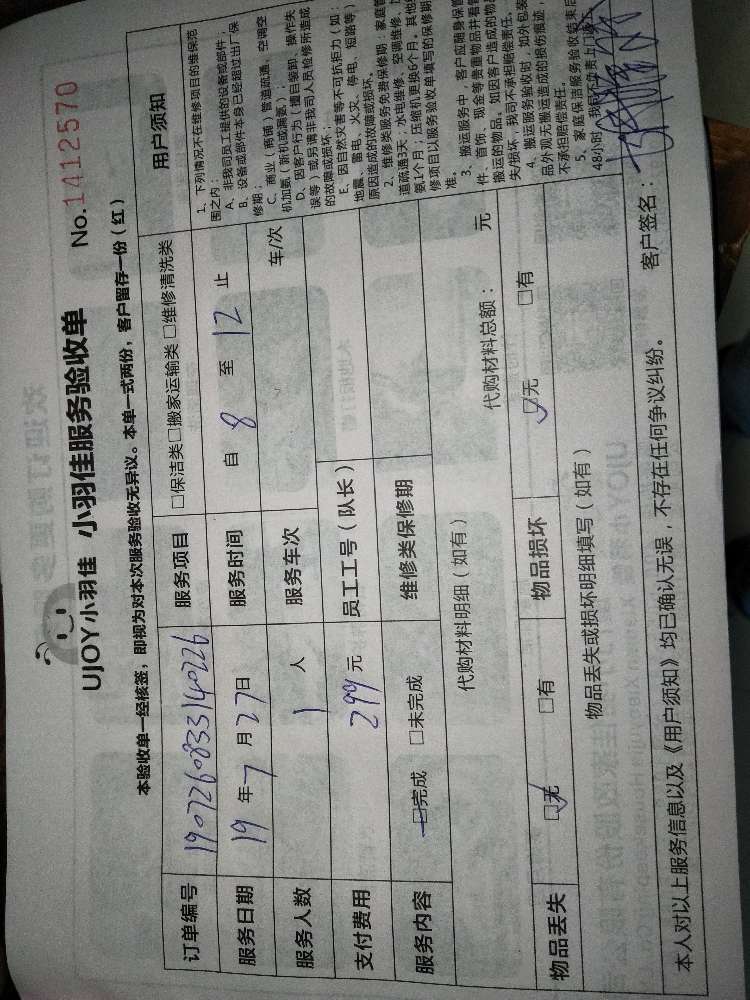 UJOY小羽佳 小羽佳服务验收单 No.1412570
本验收单一经核签，即视为对本次服务验收无异议。本单一式两份，客户留存一份（红）
订单编号 190726083314022б 服务项目 □保洁类□搬家运输类 □维修清洗类 用户须知
服务日期 19 年 7 月 27日 服务时间 自 8 至 12 止
服务人数 1 人 服务车次 车/次
支付费用 299 元 员工工号（队长）
服务内容 □完成 □未完成 维修类保修期
代购材料明细（如有） 代购材料总额： 元
物品丢失 □无 □有 物品损坏 □无 □有
物品丢失或损坏明细填写（如有）
1、下列情况不在维修项目的维保范
围之内：
A、非我司员工提供的设备或部件，
B、设备或部件本身已经超过出厂保
修期；
C、商业（商铺）管道疏通、空调空
机加氨（新机或漏氨）；
D、因客户行为（擅自装卸、操作失
误等）或另请非我司人员检修所造成
的故障或损坏；
E、因自然灾害等不可抗拒力（如：
地震、雷电、火灾、停电、短路等）
原因造成的故障或损坏。
2、维修类服务免费保修期：家庭管
道疏通3天；水电维修、空调维修、
氨1个月；压缩机更换6个月。其他
修项目以服务验收单填写的保修期
准。
3、搬运服务中，客户应随身保管
件、首饰、现金等贵重物品并看管
搬运的物品。如因客户造成的物品
失/损坏，我司不承担赔偿责任。
4、搬运服务验收时，如外包装
品外观无搬运造成的损伤痕迹，
不承担赔偿责任。
5、家庭保洁服务验收结束后
48小时，我司不负责上门
本人对以上服务信息以及《用户须知》均已确认无误，不存在任何争议纠纷。 客户签名：